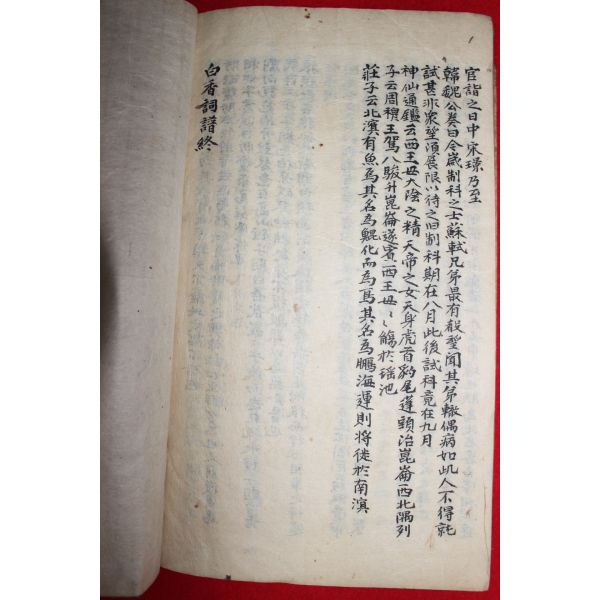 官詣之日中宋璟乃至
韓魏公奏曰今歲制科之士蘇軾兄弟最有聲望聞其弟轍偶病如此人不得就
試甚非衆望須展限以待之旧制科期在八月此後試科竟在九月
神仙通鑑云西王母大陰之精天帝之女天身虎首豹尾蓬頭治崑崙西北隅列
子云周穆王駕八駿升崑崙遂賓西王母〻觴於瑶池
莊子云北溟有魚焉其名為鯤化而為鳥其名為鵬海運則將徙於南溟
白香詞譜終